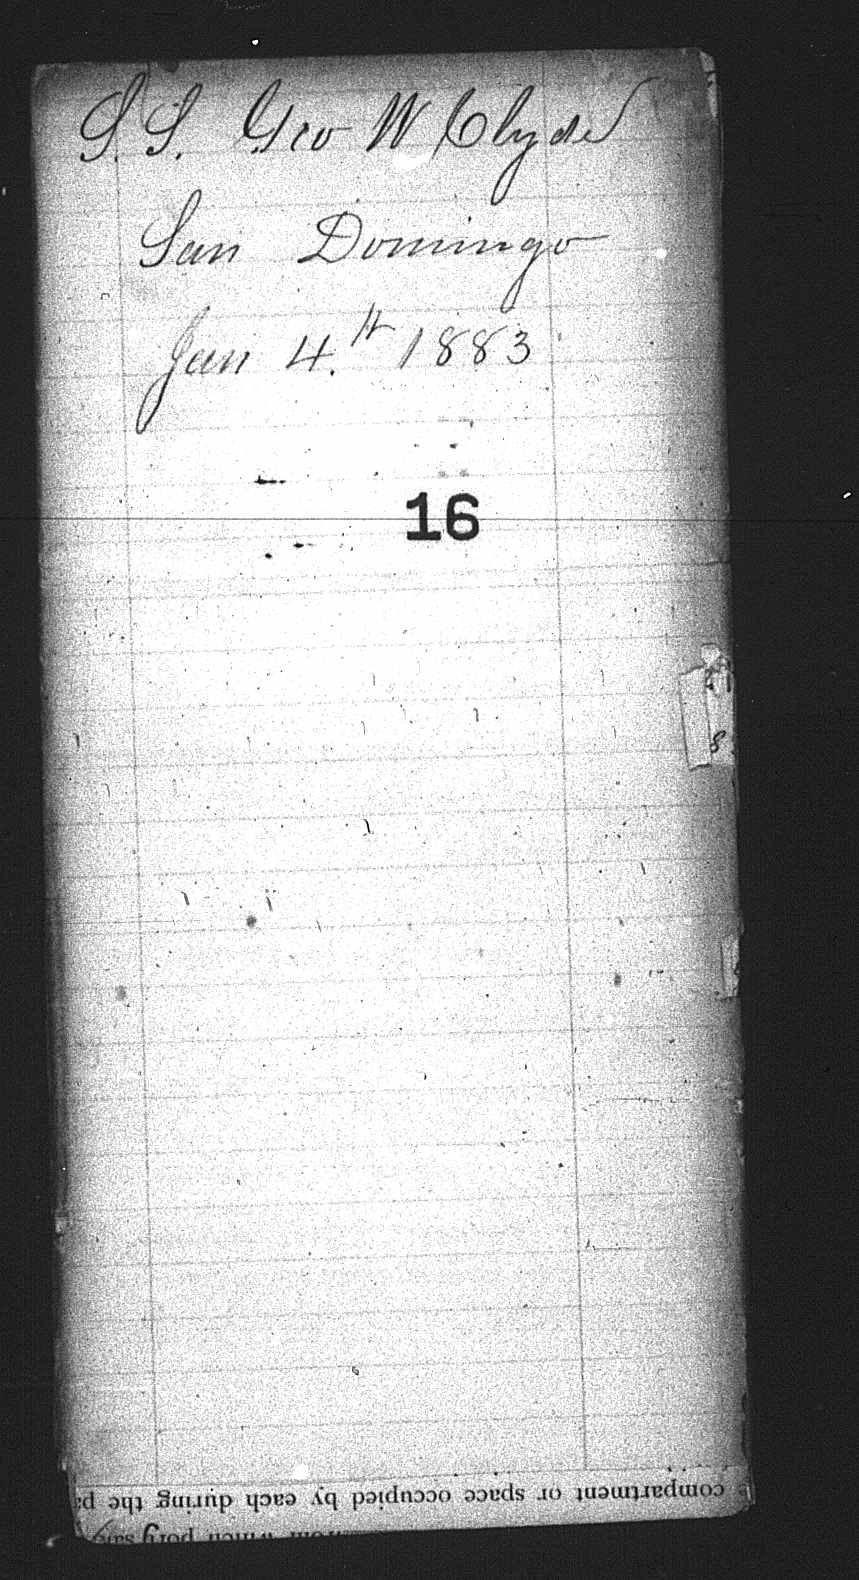 S.S. Geo W Clyde
San Domingo
Jan 4.th 1883
16
8
compartment or space occupied by each during the
from which